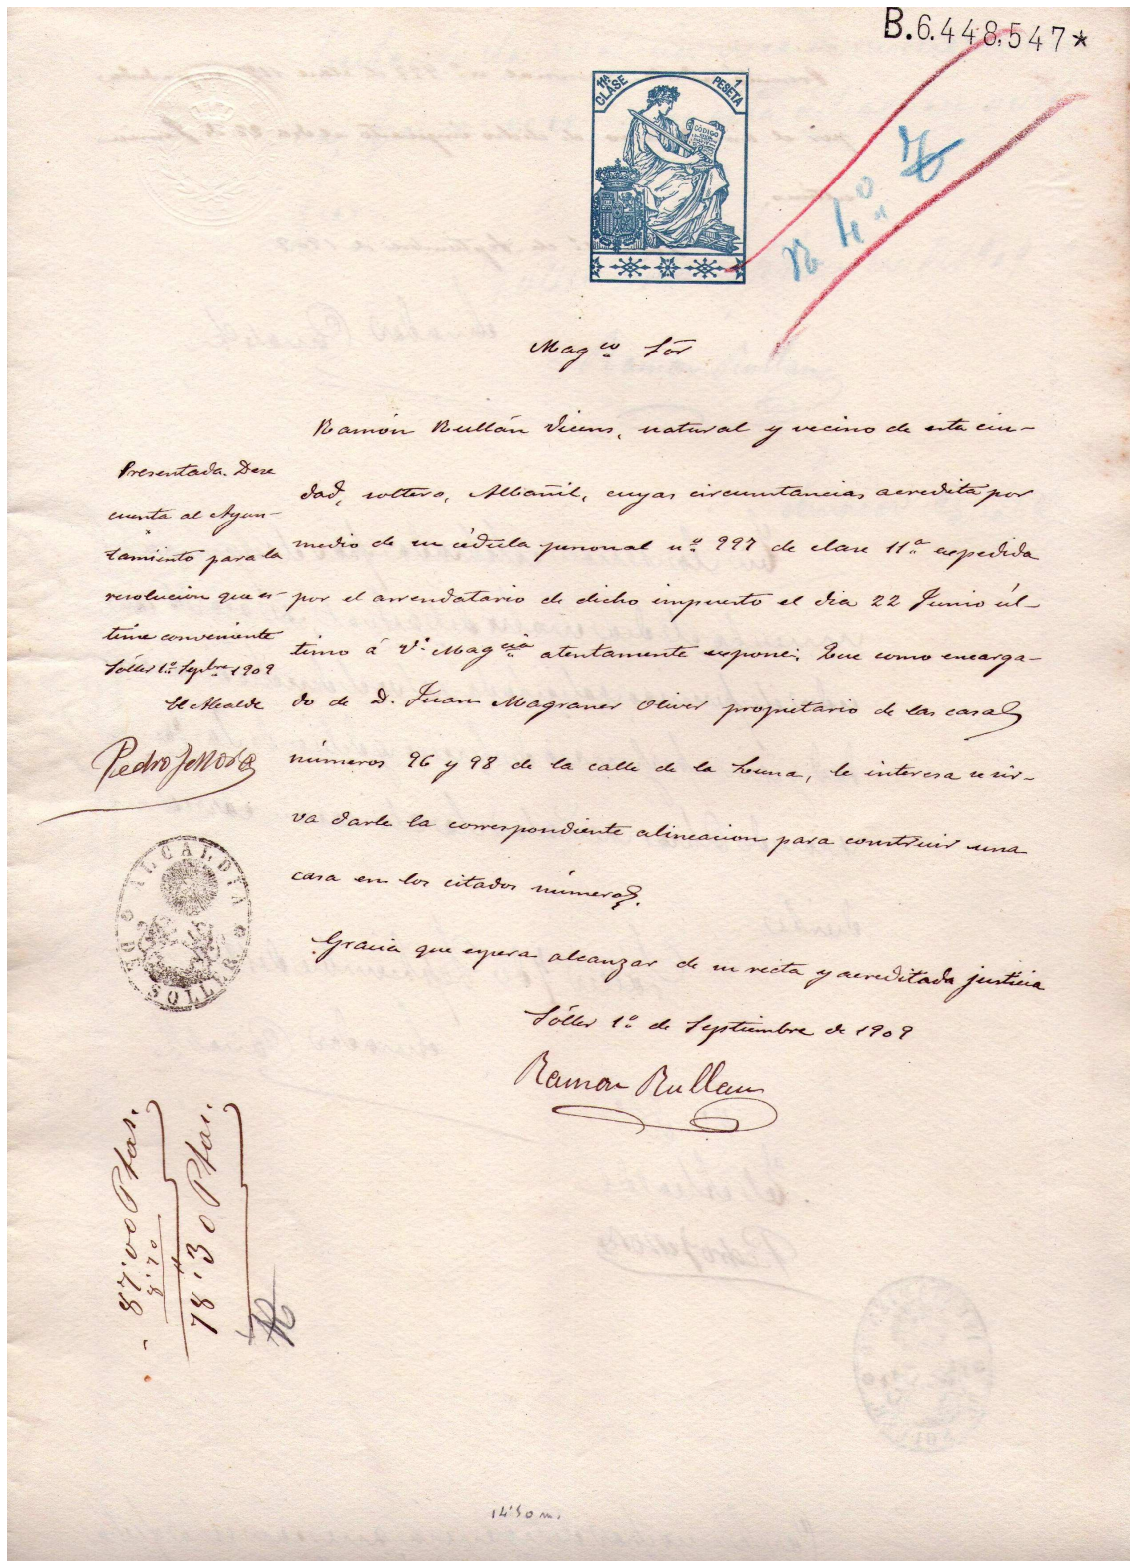 B.6.448.547*
11ª CLASE
1 PESETA
CÓDIGO
Magco Sór
Ramón Rullán Vicens, natural y vecino de esta ciu-
dad, soltero, Albañil, cuyas circunstancias acredita por
medio de su cédula personal nº 997 de clase 11ª expedida
por el arrendatario de dicho impuesto el dia 22 Junio úl-
timo á V. Magcia atentamente expone: Que como encarga-
do de D. Juan Magraner Oliver propietario de las casas
números 96 y 98 de la calle de la Luna, le interesa se sir-
va darle la correspondiente alineacion para construir una
casa en los citados números.
Gracia que espera alcanzar de su recta y acreditada justicia
Sóller 1º de Septiembre de 1909
Ramon Rullan
Presentada. Dese
cuenta al Ayun-
tamiento para la
resolucion que es-
time conveniente
Sóller 1º Sepbre 1909
El Alcalde
Pedro J.
ALCALDIA DE SOLLER
87'00 Ptas.
8'70
78'30 Ptas.
14'50 m.